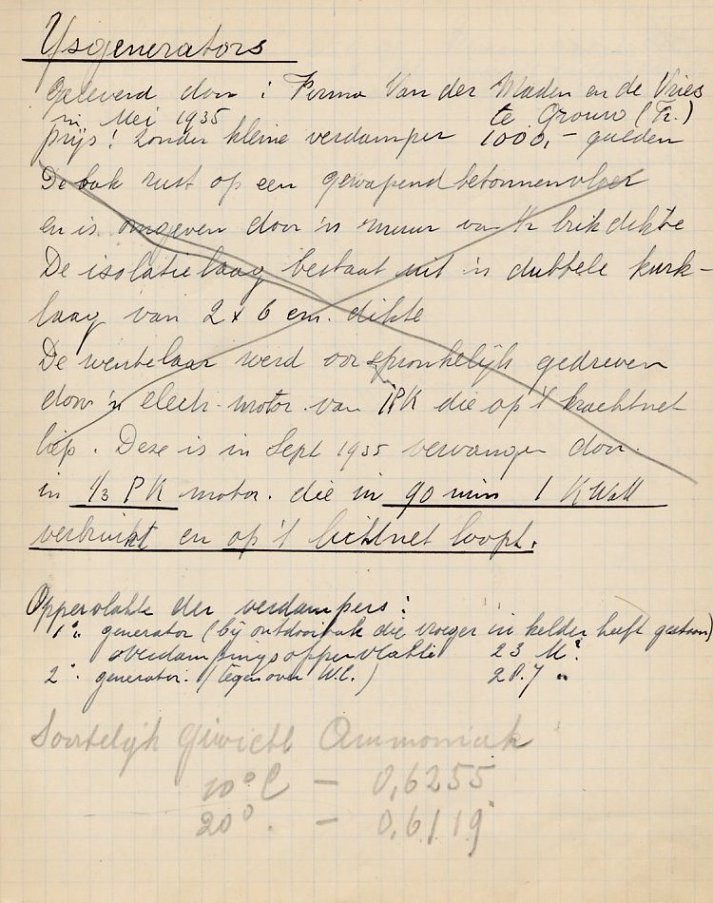 Ysgenerators
Geleverd door : Firma Van der Waden en de Vries
in Mei 1935 te Grouw (Fr.)
prijs ! zonder kleine verdamper 1000,- gulden
De bak rust op een gewapend betonnenvloer
en is omgeven door 'n muur van ½ brikdikte
De isolatielaag bestaat uit 'n dubbele kurk-
laag van 2 x 6 cm. dikte
De wentelaar werd oorspronkelijk gedreven
door 'n elect. motor van PK die op 't krachtnet
liep. Deze is in Sept 1935 vervangen door.
'n 1/3 PK motor. die in 90 min 1 KWatt
verbruikt en op 't lichtnet loopt.
Oppervlakte der verdampers :
1e. generator (bij ontdooibak die vroeger in kelder heeft gestaan)
verdampingsoppervlakte 23 M².
2e. generator. (tegenover W.C.) 20.7 "
Soortelijk Gewicht Ammoniak
10° C - 0,6255
20°. - 0,6119